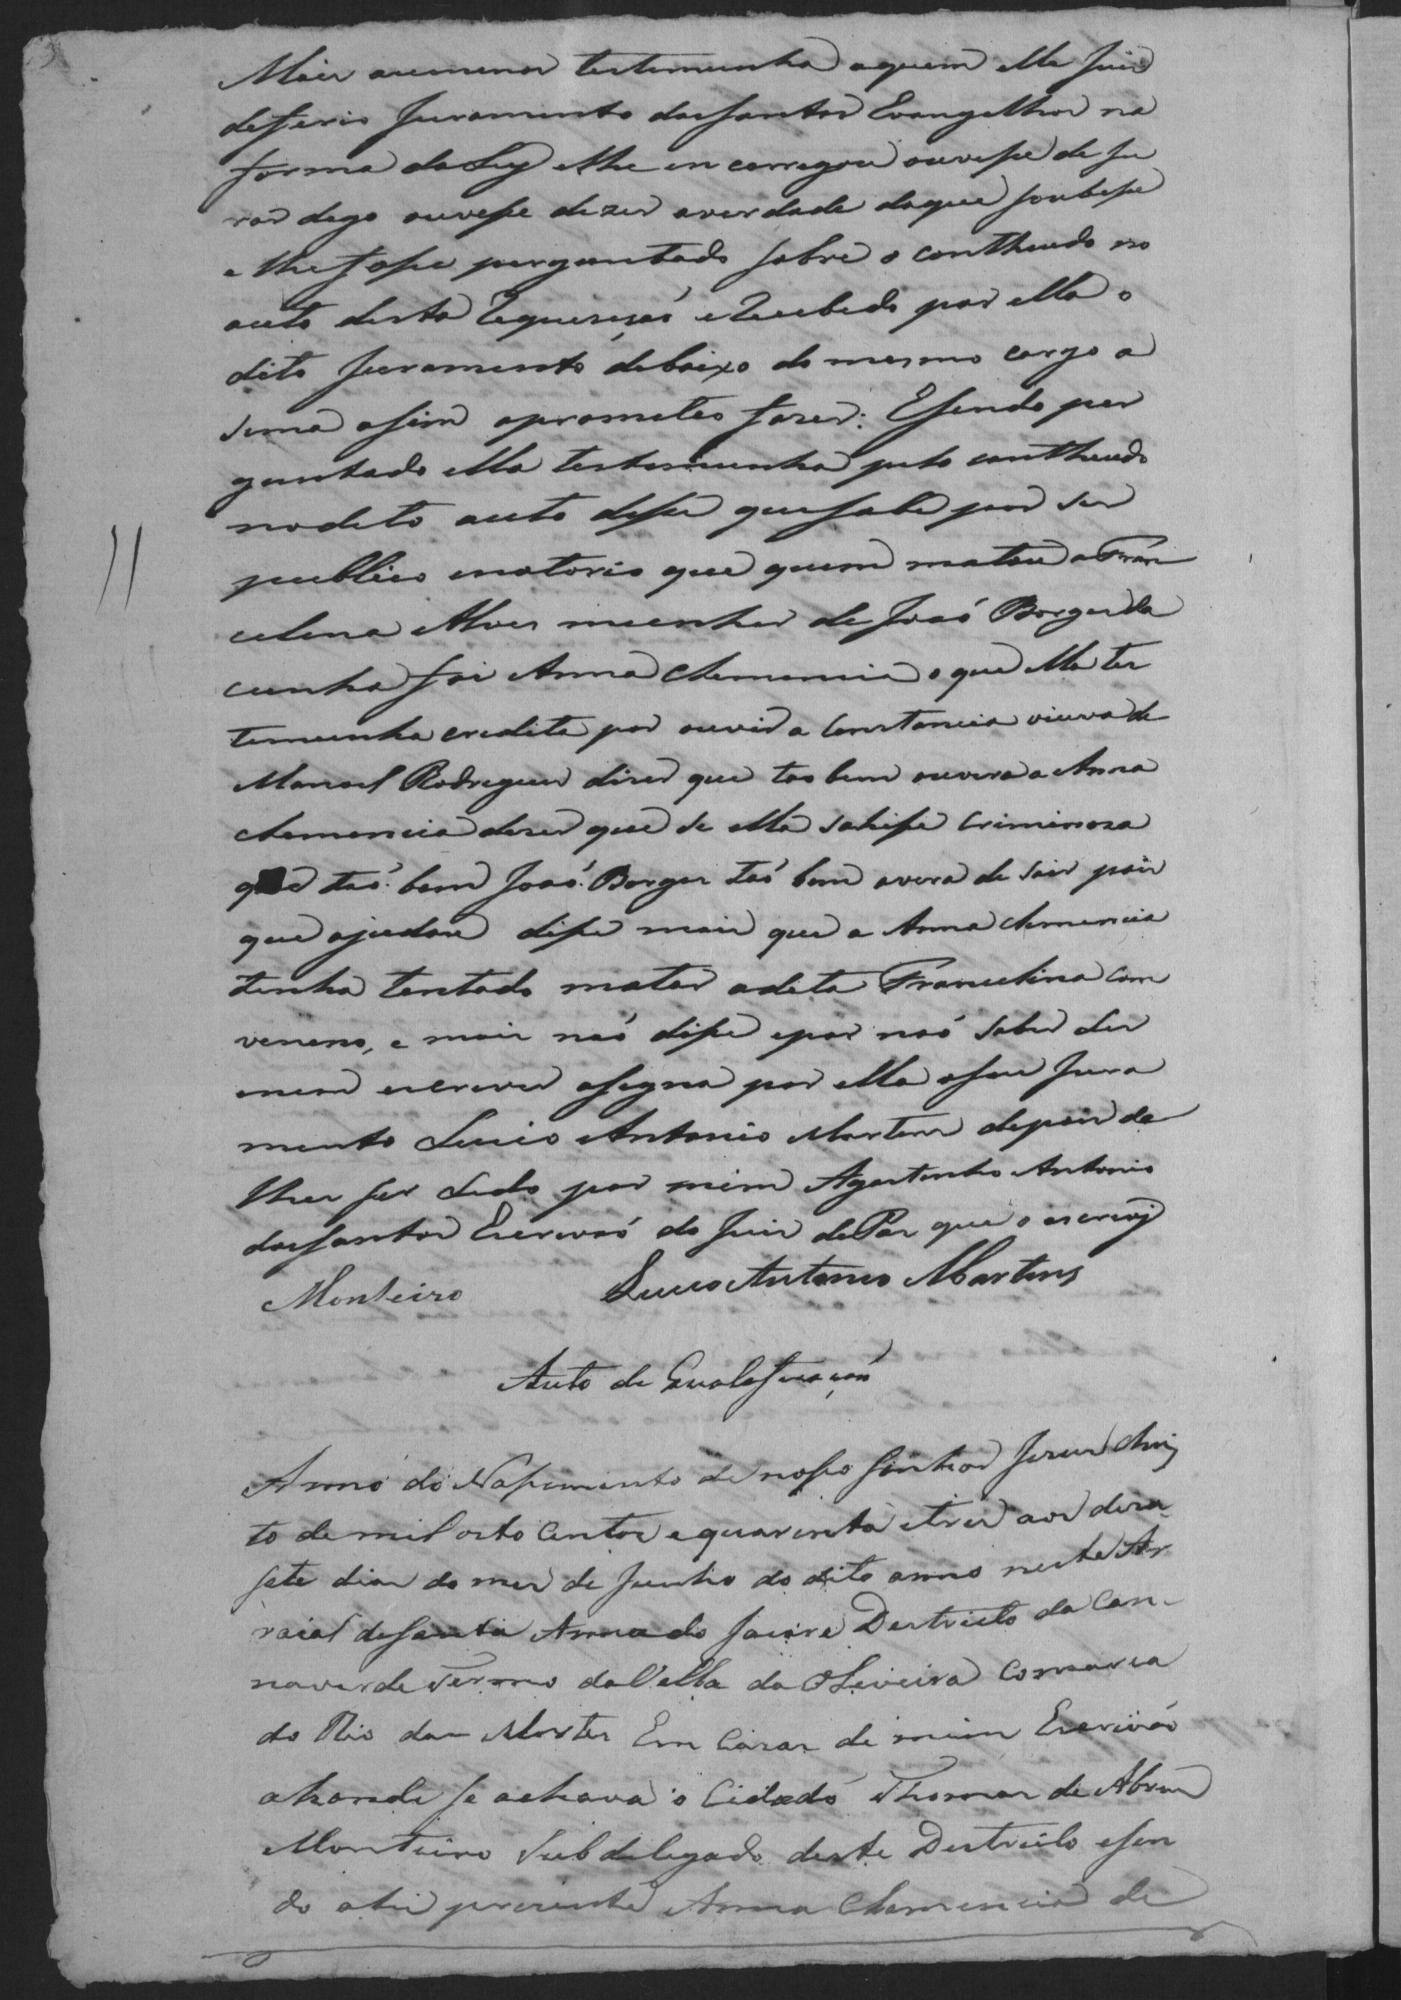 Mais aomenos testemunha aquem elle Juis
deferio Juramento dos Santos Evangelhos na
forma da Ley elhe en carregou ouvesse de Ju
rar dego ouvesse dizer averdade doque soubesse
e lhe fosse perguntado sobre o contheudo no
auto desta Requeresaõ e Recebido por ella o
dito Juramento debaixo do mesmo cargo a
sima assim aprometeo fazer: Esendo per
guntado ella testemunha pelo contheudo
nodito auto disse que sabe por ser
publico enotorio que quem matou a Fran
celina Alves mulher de Joaõ Borges da
cunha foi Anna Clemencia o que ella tes
temunha credita por ouvir a Constancia viuva de
Manoel Rodrigues diser que tao bem ouvira a Anna
Clemencia diser que se ella sahisse Criminosa
que taõ bem Joaõ Borges taõ bem avera de sair pois
que ajudou disse mais que a Anna Clemencia
tinha tentado matar adita Francelina com
veneno, e mais naõ disse epor naõ saber Ler
enem escrever assigna por ella oseu Jura
mento Lucio Antonio Martins depois de
lhes ser Lido por mim Agostinho Antonio
dos Santos Escrivaõ do Juis de Paz que o escrevy
Monteiro Lucio Antonio Martins
Auto de Qualeficaçaõ
Anno do Nassimento de nosso Senhor Jesus Chris
to de mil oito Centos e quarenta etres aos deza
sete dias do mes de Junho do dito anno neste Ar
raial de Santa Anna do Jacaré Destricto da Can
naverde Termo da Villa da Oliveira Comarca
do Rio das Mortes Em Cazas de mim Escrivaõ
ahonde se achava o Cidadaõ Thomas de Abreu
Monteiro Subdelegado deste Destricto esen
do ahi prezente Anna Clemencia de